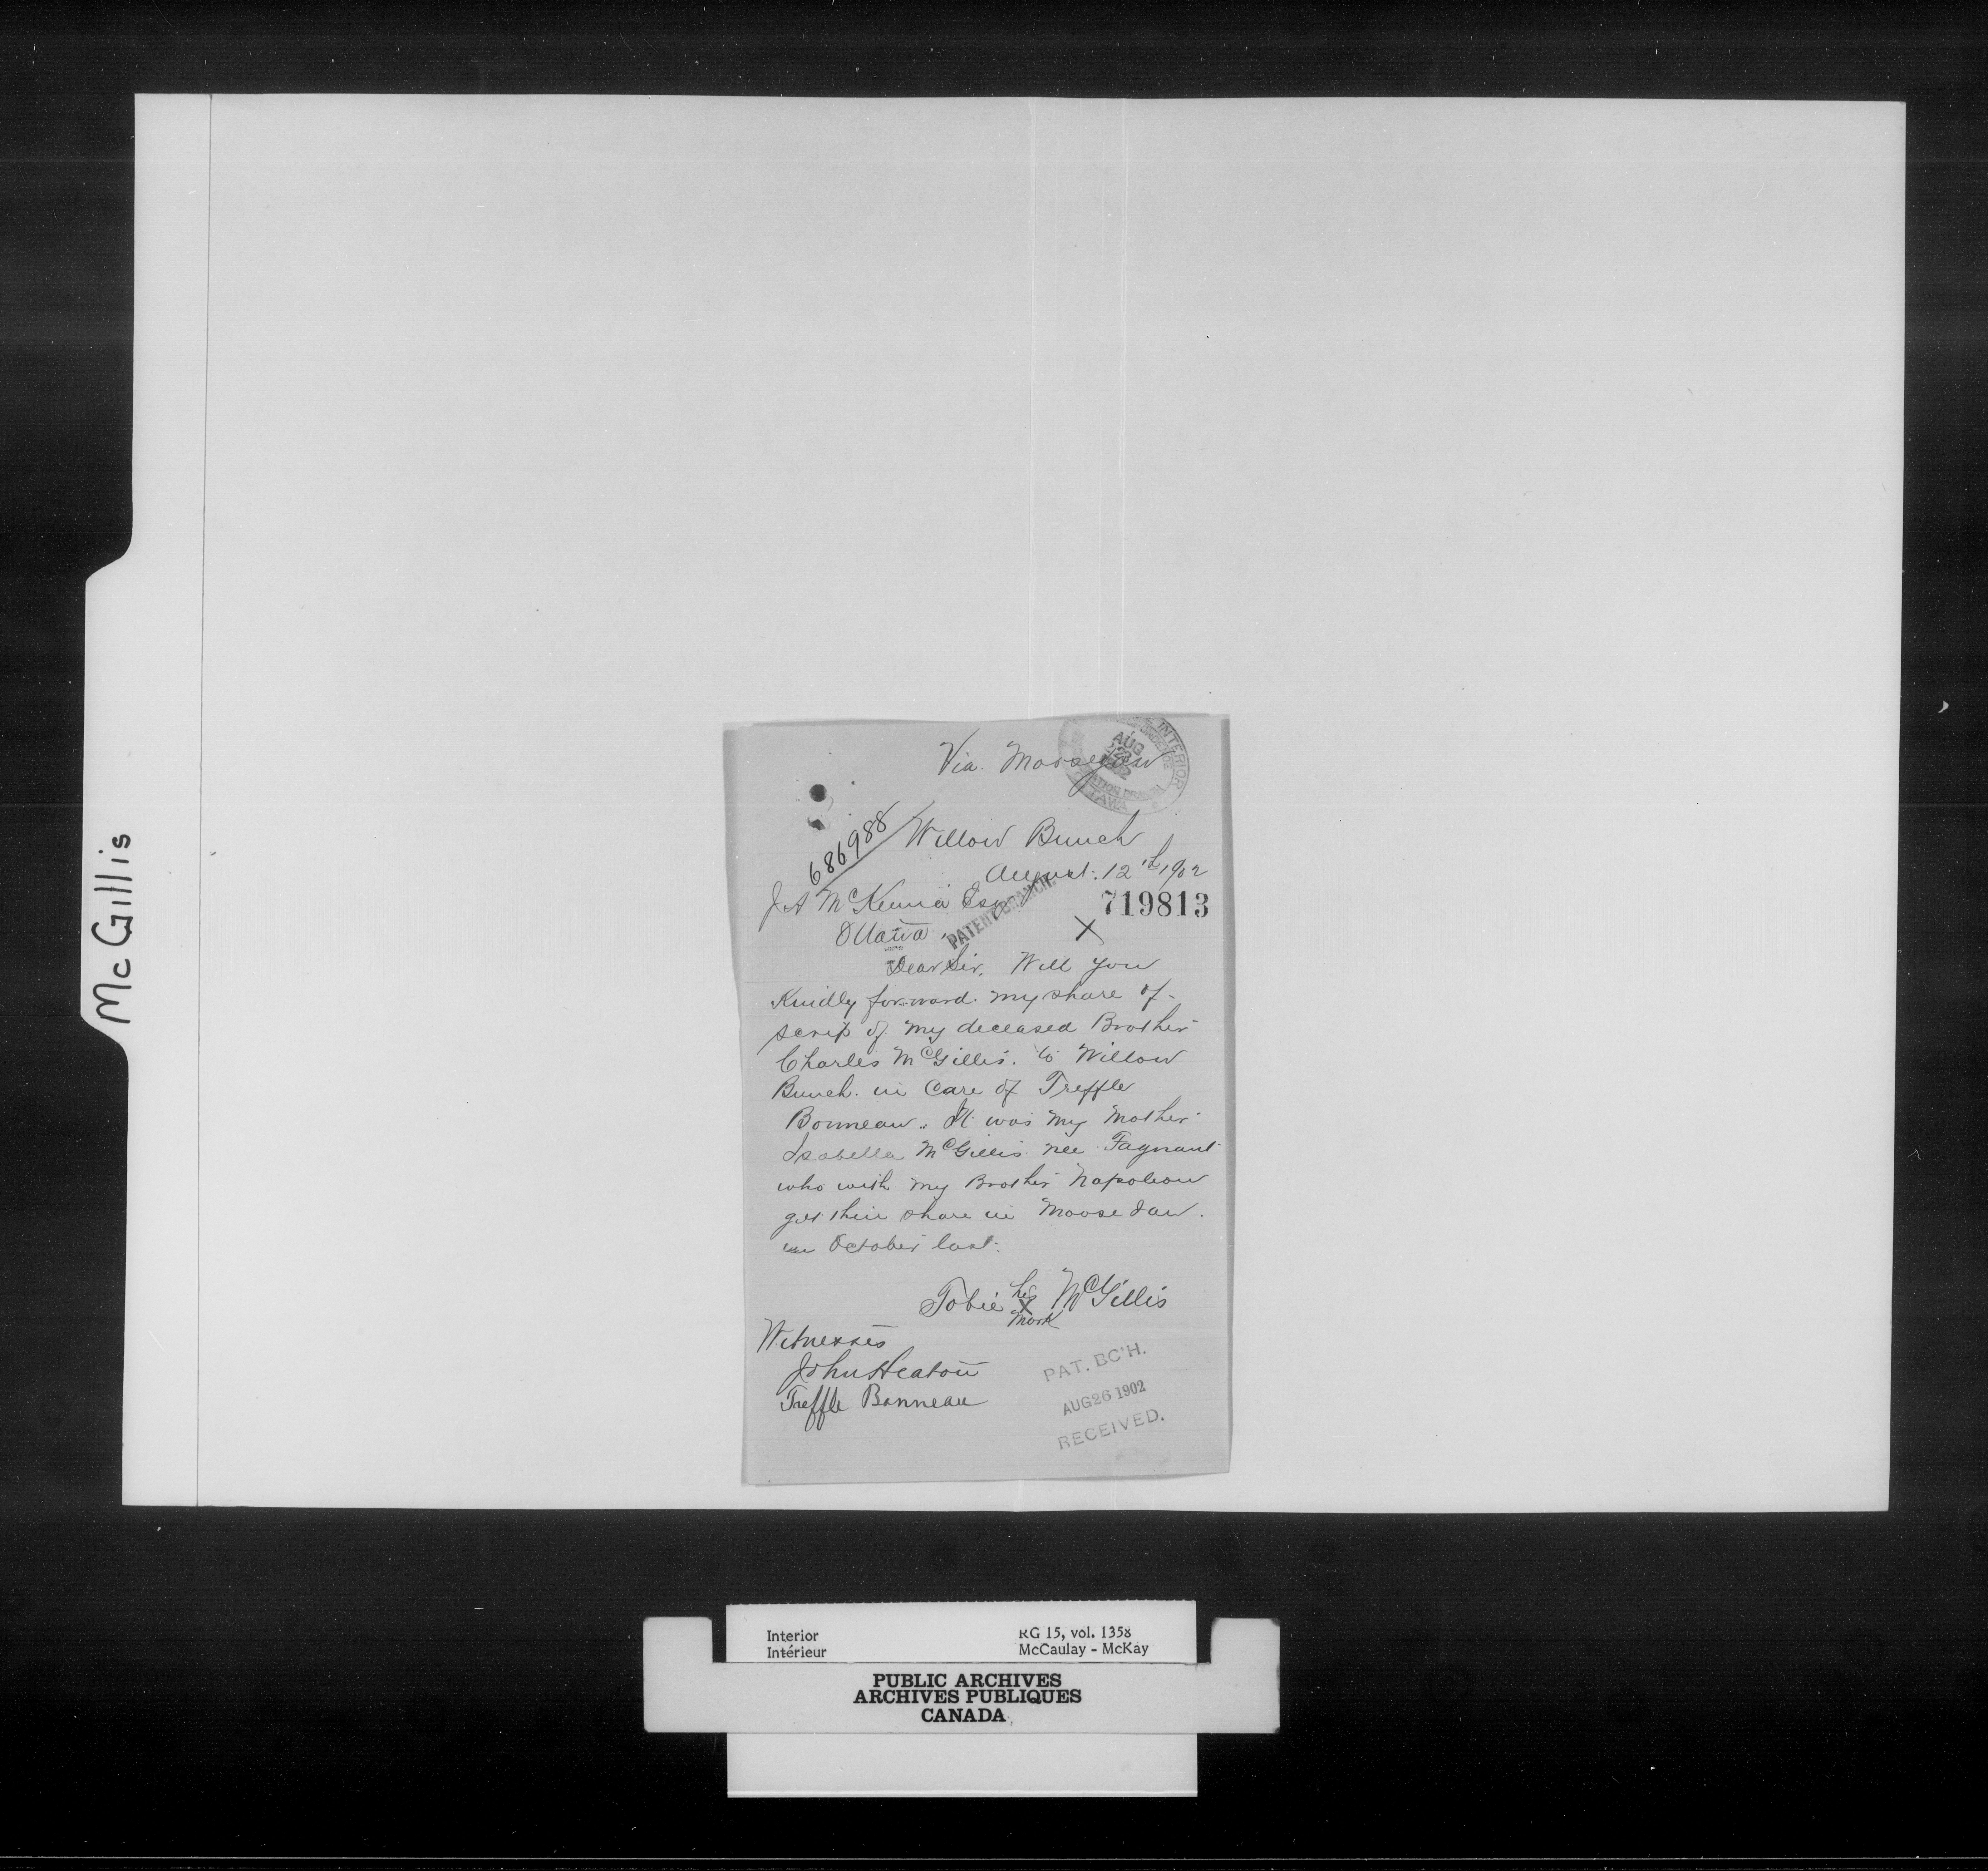 McGillis
Via. Moosejaw
INTERIOR
AUG
OTTAWA
686988
Willow Bunch
August. 12th 1902
J A McKenna Esq
719813
PATENT BRANCH
Ottawa.
X
Dear Sir. Will you
Kindly forward. my share of
scrip of my deceased Brother
Charles McGillis. to Willow
Bunch. in Care of Treffle
Bonneau. It was my Mother
Isabella McGillis nee Fagnant
who with my Brother Napoleon
get their share in Moose Jaw.
in October last.
Tobie his X mark McGillis
Witnesses
John Heaton
Treffle Bonneau
PAT. BC'H.
AUG 26 1902
RECEIVED.
Interior RG 15, vol. 1358
Intérieur McCaulay - McKay
PUBLIC ARCHIVES
ARCHIVES PUBLIQUES
CANADA